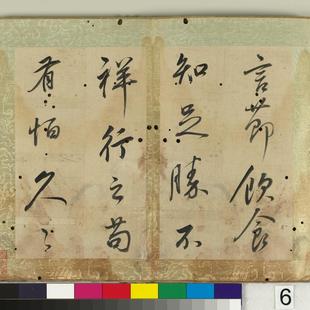 言節飲食
知足勝不
祥行之苟
有恒久々
6